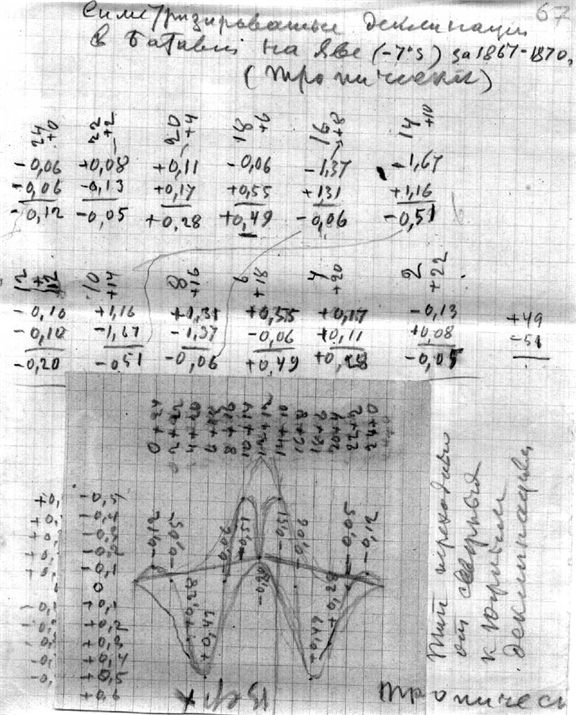 67
Симетризированые деклинации
в Батавии на Яве (-7°S) за 1867-1870,
(тропически)
24+0 22+2 20+4 18+6 16+8 14+10
-0,06 +0,08 +0,11 -0,06 -1,37 -1,67
-0,06 -0,13 +0,17 +0,55 +1,31 +1,16
-0,12 -0,05 +0,28 +0,49 -0,06 -0,51
12+12 10+14 8+16 6+18 4+20 2+22
-0,10 +1,16 +1,31 +0,55 +0,17 -0,13 +49
-0,10 -1,67 -1,37 -0,06 +0,11 +0,08 -51
-0,20 -0,51 -0,06 +0,49 +0,28 -0,05
0+24
2+22
4+20
6+18
8+16
10+14
12+12
14+10
16+8
18+6
20+4
22+2
24+0
-0,12 -0,05 +0,28 +0,49 -0,06 -0,51 -0,20 -0,51 -0,06 +0,49 +0,28 -0,05 -0,12
-0,5
-0,4
-0,1
0
+0,1
+0,2
+0,3
+0,4
+0,5
+0,6
Тип переходный
от северных
к южным
деклинациям
Верх
тропичесь